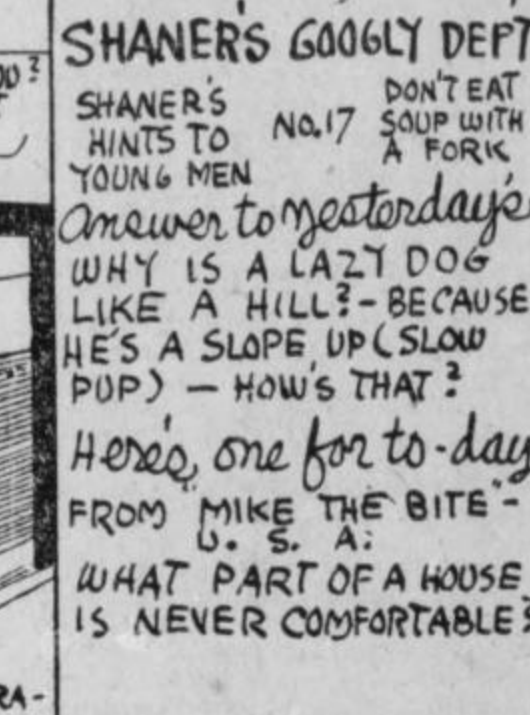 SHANER'S GOOGLY DEPT
SHANER'S
HINTS TO
YOUNG MEN
No.17
DON'T EAT
SOUP WITH
A FORK
Answer to yesterday's
WHY IS A LAZY DOG
LIKE A HILL? - BECAUSE
HE'S A SLOPE UP (SLOW
PUP) — HOW'S THAT?
Here's one for to-day
FROM "MIKE THE BITE" -
U. S. A.
WHAT PART OF A HOUSE
IS NEVER COMFORTABLE?
RA-